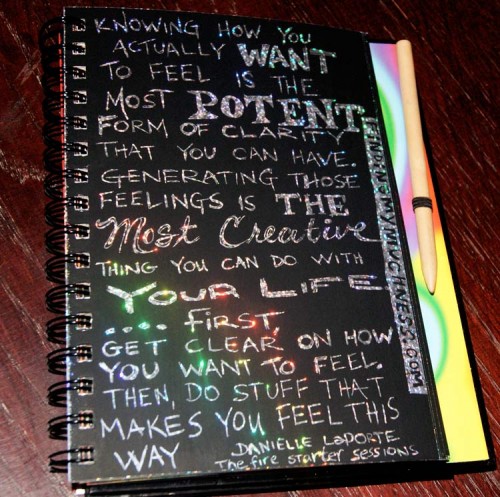 KNOWING HOW YOU
ACTUALLY WANT
TO FEEL IS THE
MOST POTENT
FORM OF CLARITY
THAT YOU CAN HAVE.
GENERATING THOSE
FEELINGS IS THE
Most Creative
THING YOU CAN DO WITH
YOUR LIFE
.... FIRST,
GET CLEAR ON HOW
YOU WANT TO FEEL.
THEN, DO STUFF THAT
MAKES YOU FEEL THIS
WAY
DANIELLE LAPORTE
The fire starter sessions